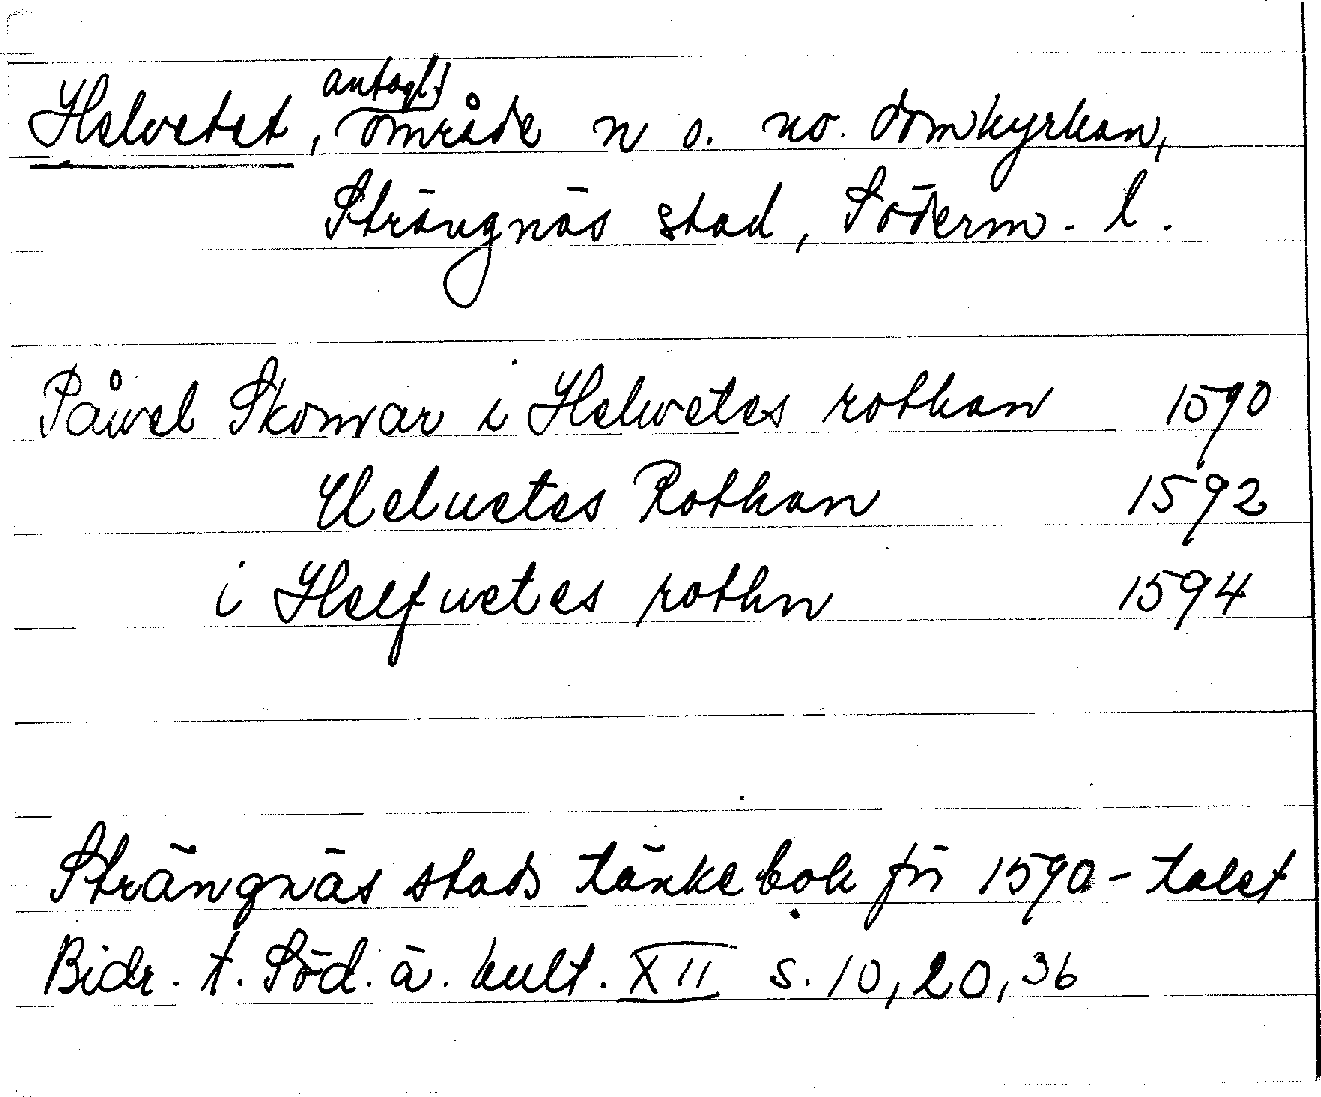 Helvetet, antagl. område n o. no. domkyrkan,
Strängnäs stad, Söderm. l.
Påwel Skomar i Helwetes rothan 1590
Heluetes Rothan 1592
i Helfuetes rothn 1594
Strängnäs stads tänkebok fr 1590-talet
Bidr. t. Söd. ä. kult. XII s. 10, 20, 36